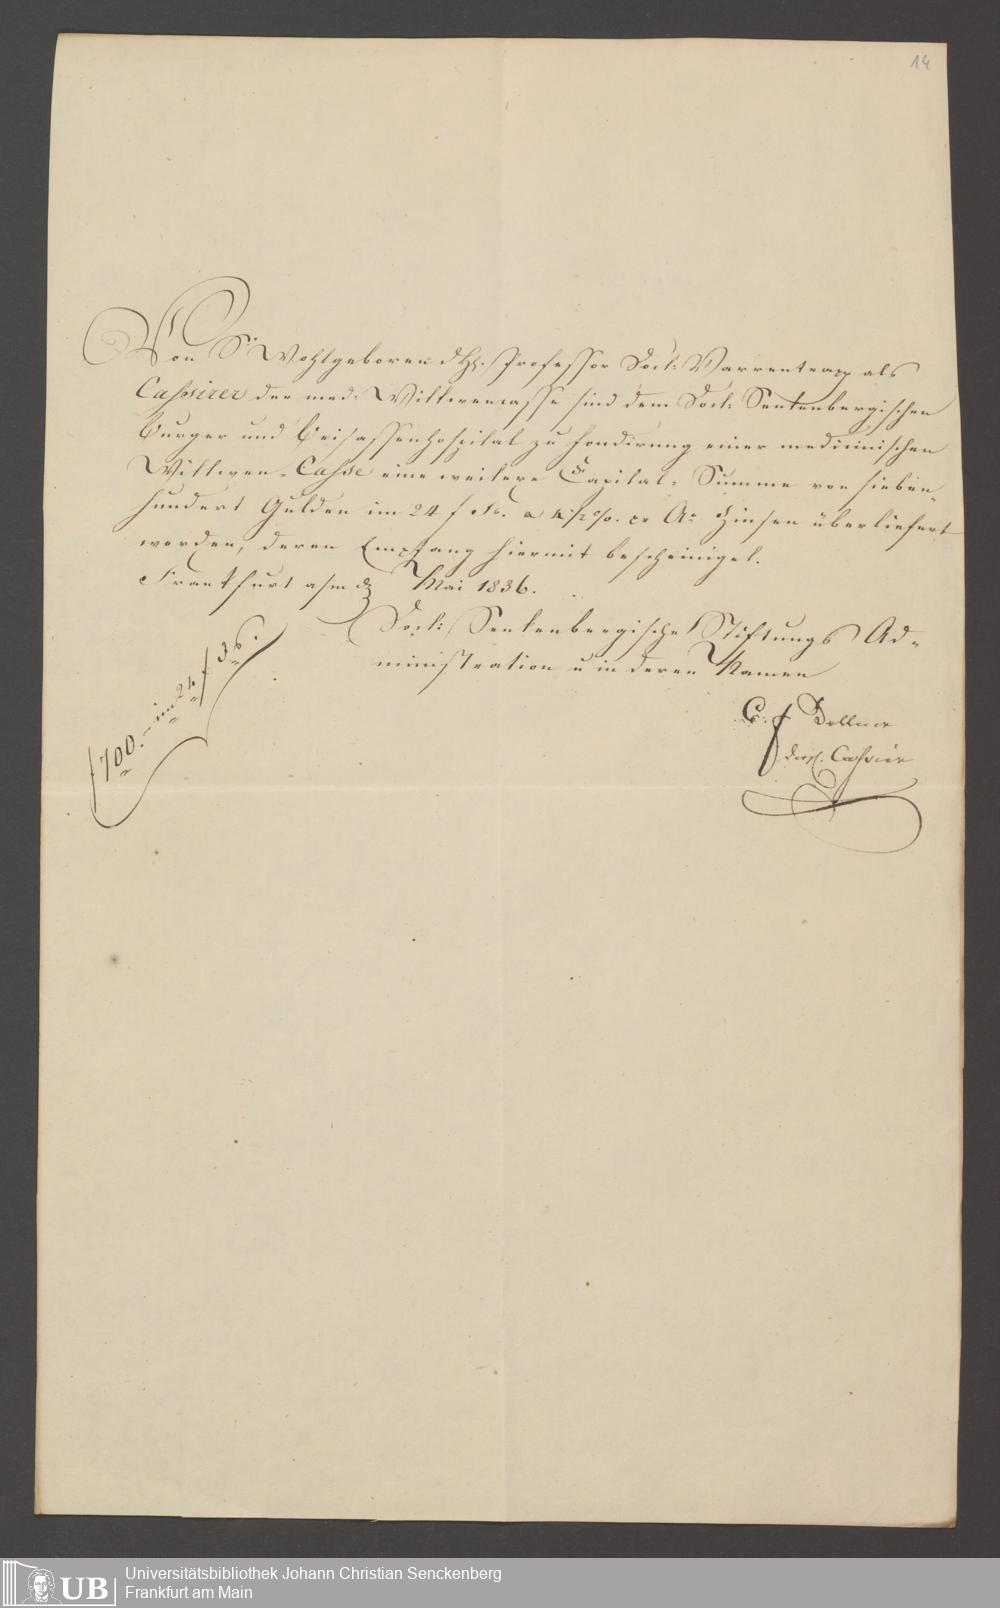 14
Von Sr Wohlgeboren d Hh. Professor Doct: Varrentrapp als
Cassirer der med: Wittwencasse sind dem Doct: Senkenbergischen
Burger und Beisassenhospital zu Fondirung einer medicinischen
Wittwen-Casse eine weitere Capital-Summe von sieben
hundert Gulden im 24 f a 4 1/2 %. pr Ao Zinsen überliefert
worden, deren Empfang hiermit bescheinigt.
Frankfurt a/m Mai 1836.
Doct: Senkenbergische Stiftungs Ad-
ministration u in deren Namen
C. F
derz. Cassier
f 700.- im 24 f
Universitätsbibliothek Johann Christian Senckenberg
Frankfurt am Main
UB